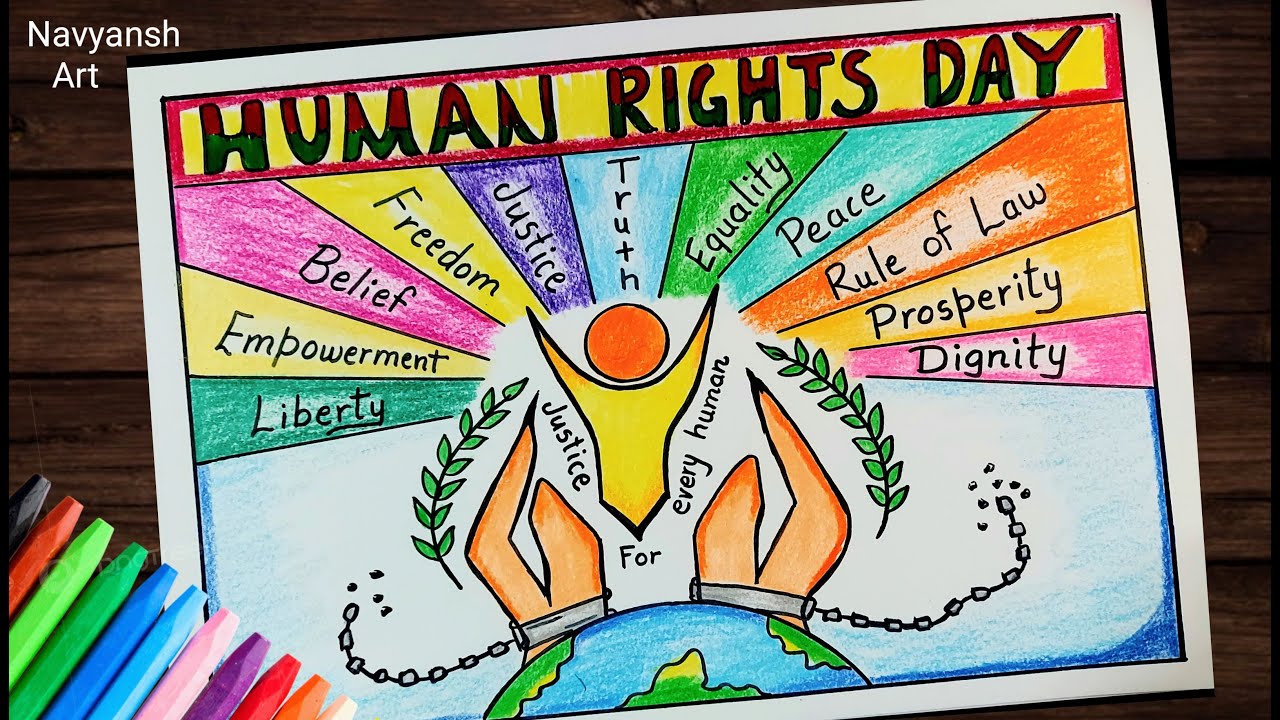 Navyansh
Art
HUMAN RIGHTS DAY
Liberty
Empowerment
Belief
Freedom
Justice
Truth
Equality
Peace
Rule of Law
Prosperity
Dignity
Justice
For
every human